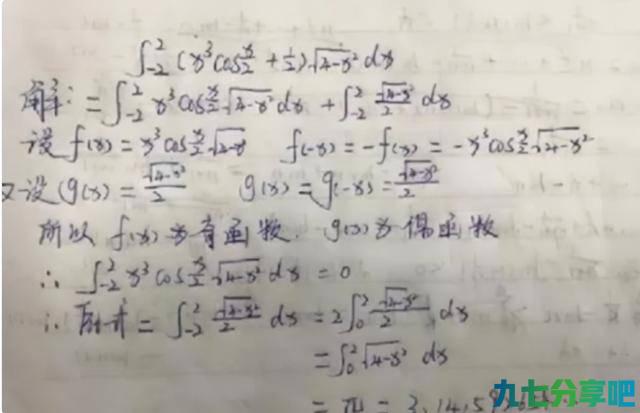 ∫₋₂² (x³cos x/2 + 1/2)√(4-x²) dx
解: = ∫₋₂² x³cos x/2 √(4-x²) dx + ∫₋₂² √(4-x²)/2 dx
设 f(x) = x³cos x/2 √(4-x²) f(-x) = -f(x) = -x³cos x/2 √(4-x²)
又设 g(x) = √(4-x²)/2 g(x) = g(-x) = √(4-x²)/2
所以 f(x) 为奇函数. g(x) 为偶函数
∴ ∫₋₂² x³cos x/2 √(4-x²) dx = 0
∴ 原式 = ∫₋₂² √(4-x²)/2 dx = 2∫₀² √(4-x²)/2 dx
= ∫₀² √(4-x²) dx
= π = 3.1415926
九七分享吧